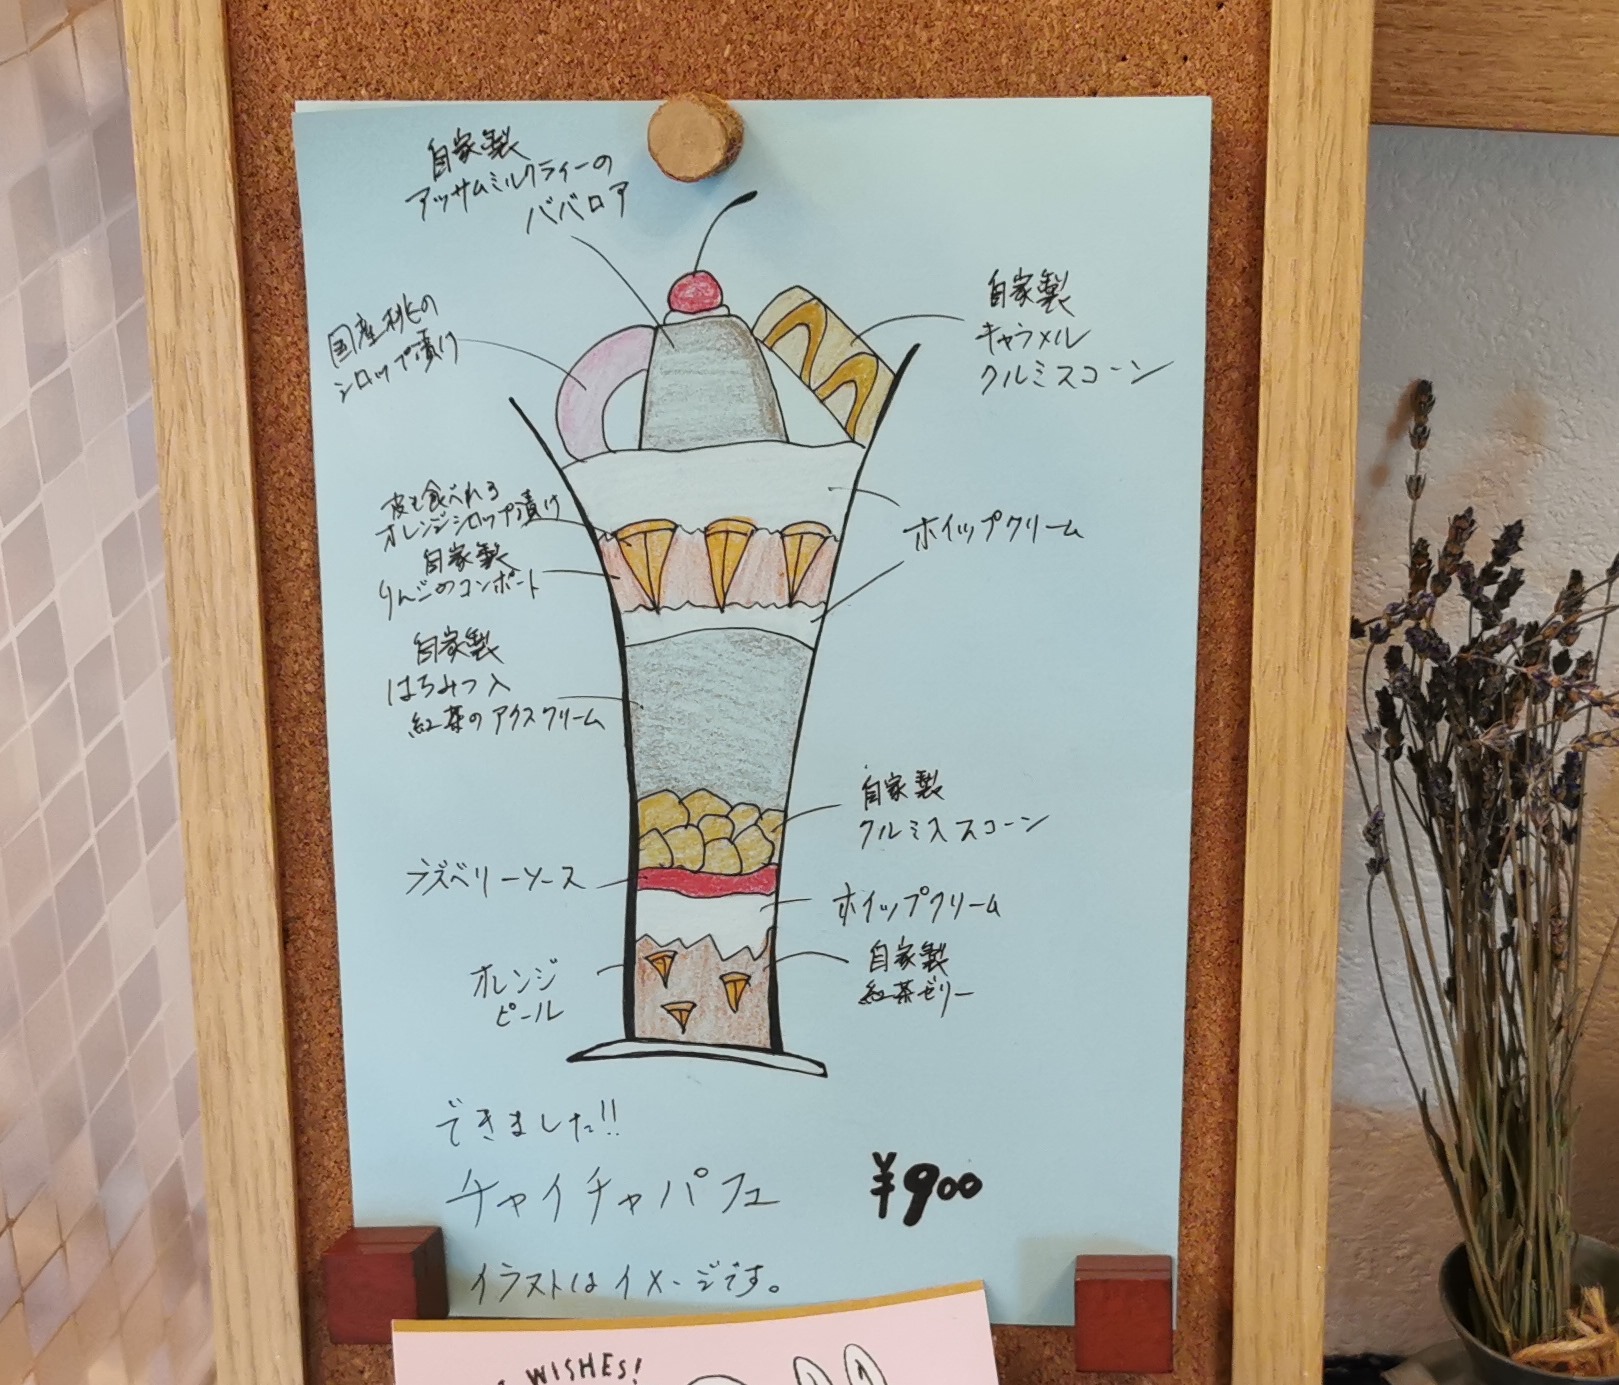 自家製
アッサムミルクティーの
ババロア
国産桃の
シロップ漬け
自家製
キャラメル
クルミスコーン
皮も食べれる
オレンジシロップ漬け
自家製
りんごのコンポート
ホイップクリーム
自家製
はちみつ入
紅茶のアイスクリーム
自家製
クルミスコーン
ラズベリーソース
ホイップクリーム
オレンジ
ピール
自家製
紅茶ゼリー
できました!!
チャイチャパフェ
¥900
イラストはイメージです。
WISHES!